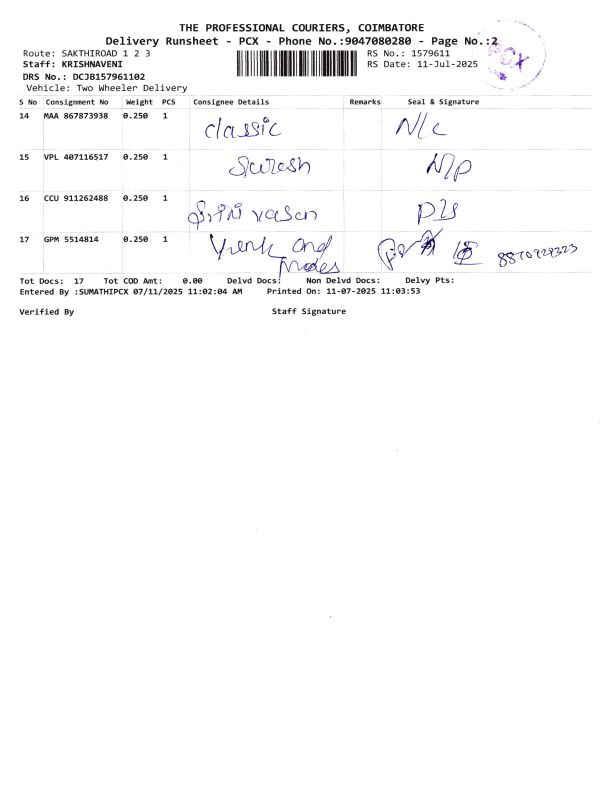 THE PROFESSIONAL COURIERS, COIMBATORE
Delivery Runsheet - PCX - Phone No.:9047080280 - Page No.:2
Route: SAKTHIROAD 1 2 3 RS No.: 1579611
Staff: KRISHNAVENI RS Date: 11-Jul-2025
DRS No.: DCJB157961102
Vehicle: Two Wheeler Delivery
PCX
S No Consignment No Weight PCS Consignee Details Remarks Seal & Signature
14 MAA 867873938 0.250 1 classic N/c
15 VPL 407116517 0.250 1 Suresh N/P
16 CCU 911262488 0.250 1 vasan
17 GPM 5514814 0.250 1 and
Tot Docs: 17 Tot COD Amt: 0.00 Delvd Docs: Non Delvd Docs: Delvy Pts:
Entered By :SUMATHIPCX 07/11/2025 11:02:04 AM Printed On: 11-07-2025 11:03:53
Verified By Staff Signature